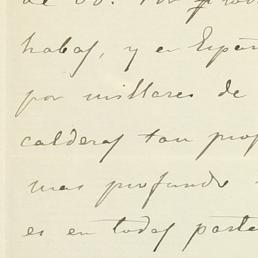 habas, y en Españ
por millares de
calderas tan prof
mas profundo
es en todas parte